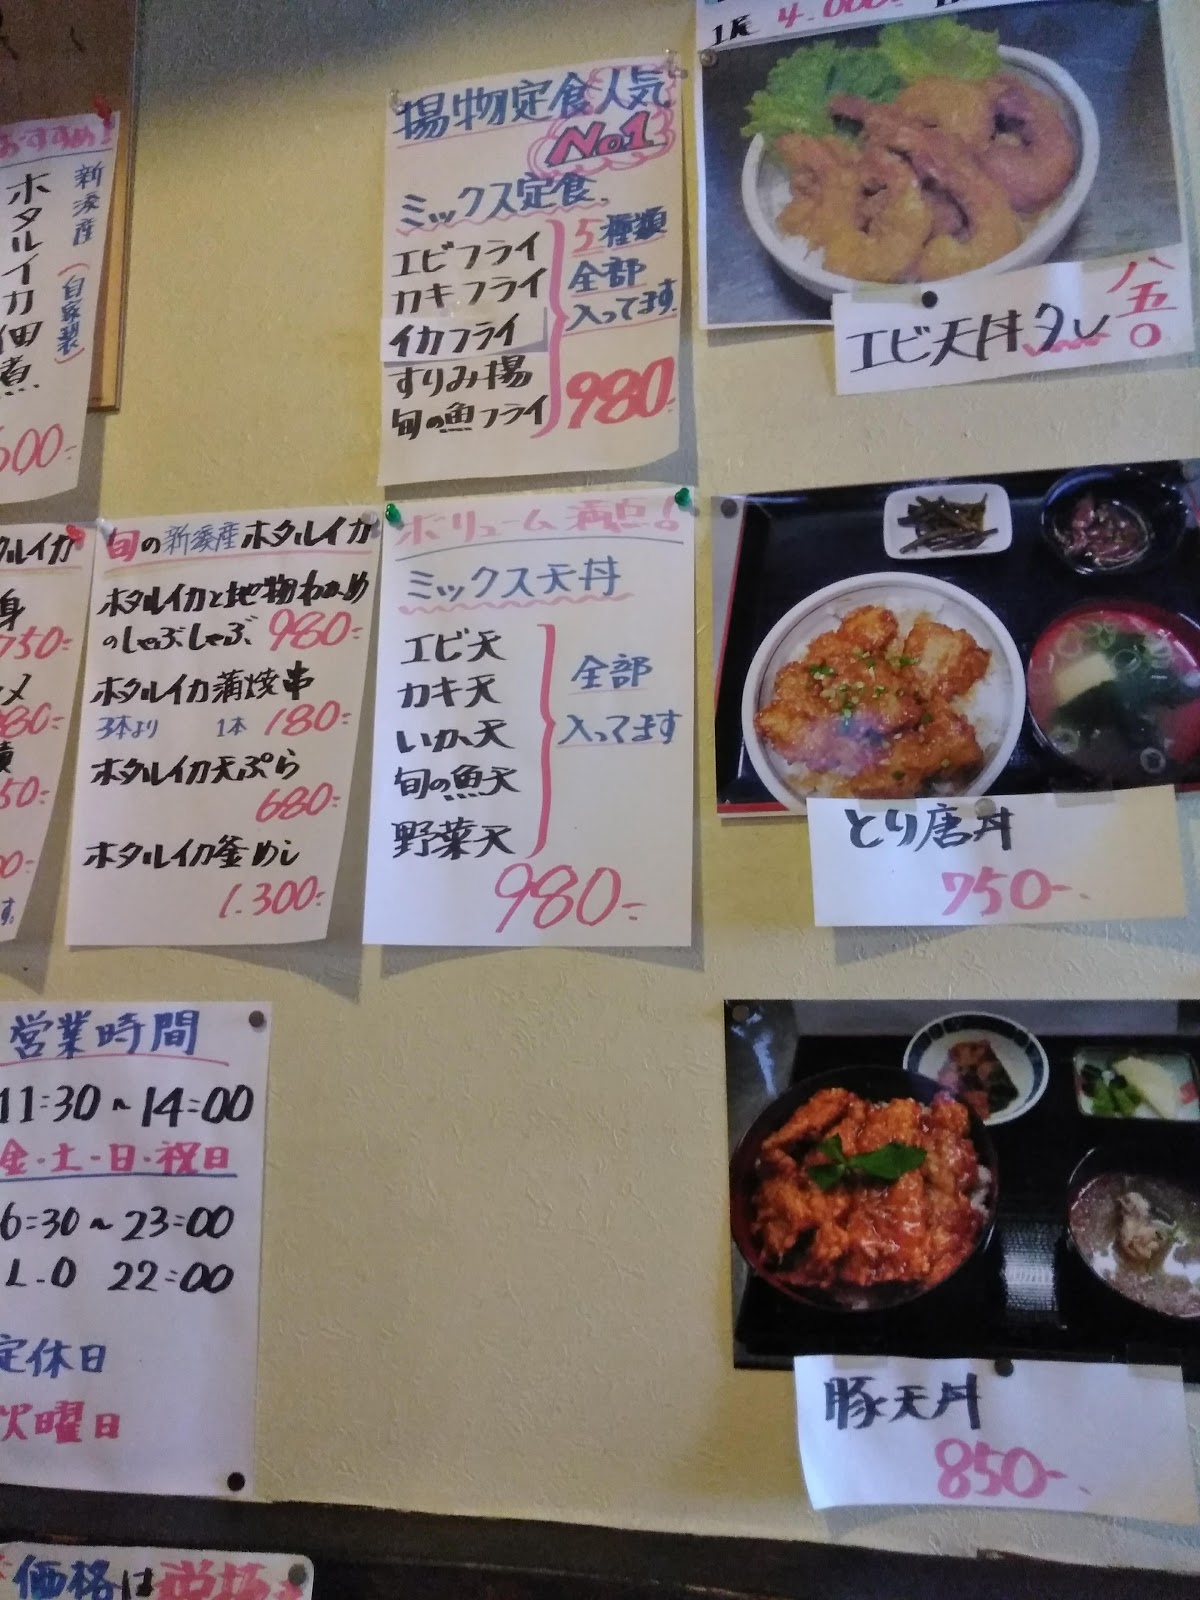 おすすめ!
新湊産(自家製)
ホタルイカ佃煮
揚物定食人気
No1
ミックス定食
エビフライ
カキフライ
イカフライ
すりみ揚
旬の魚フライ
5種類
全部
入ってます
980-
エビ天丼タレ
八五〇
旬の新湊産ホタルイカ
ホタルイカと地物わかめ
のしゃぶしゃぶ 980-
ホタルイカ蒲焼串
3本より 1本 180-
ホタルイカ天ぷら
680-
ホタルイカ釜めし
1.300-
ボリューム満点!
ミックス天丼
エビ天
カキ天
いか天
旬の魚天
野菜天
全部
入ってます
980-
とり唐丼
750-
豚天丼
850-
営業時間
11:30~14:00
金・土・日・祝日
6:30~23:00
L.O 22:00
定休日
火曜日
価格は税抜